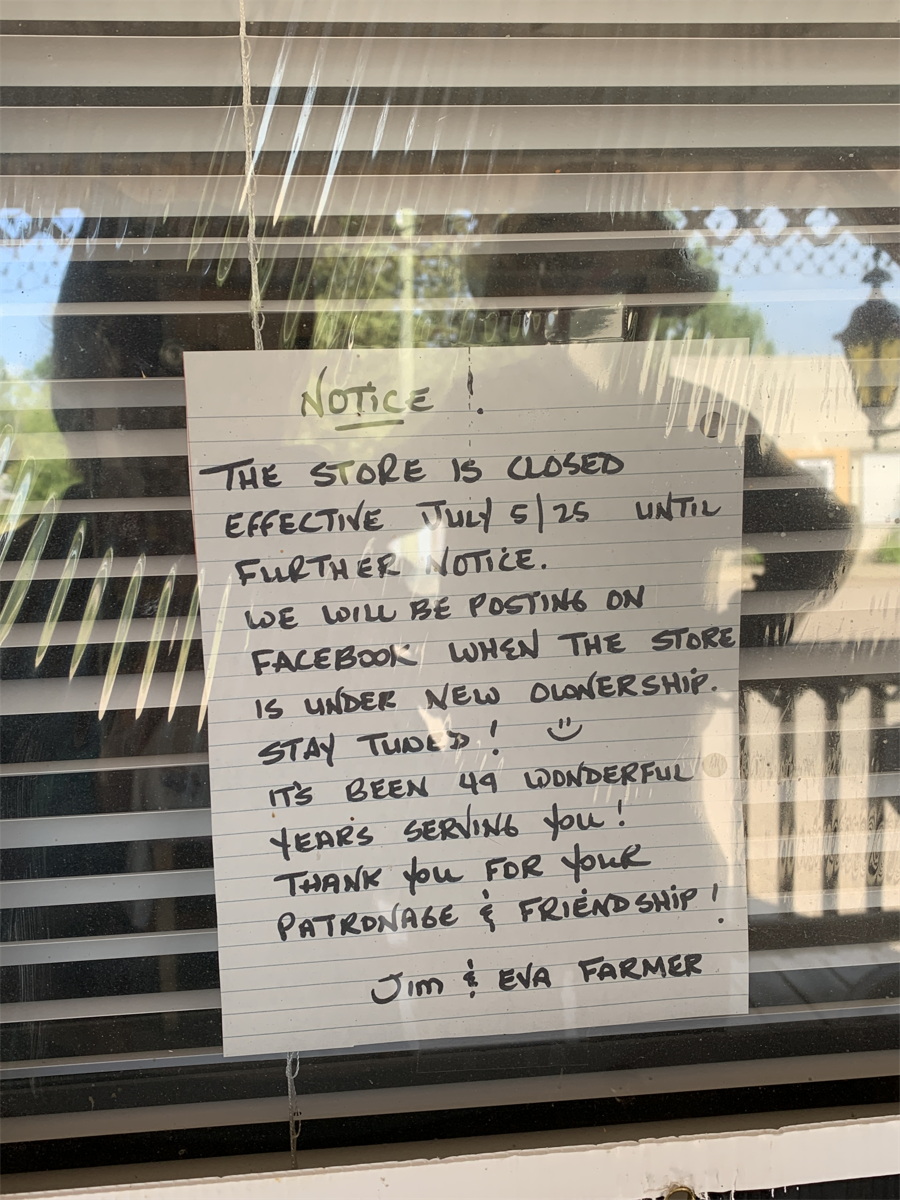 NOTICE !
THE STORE IS CLOSED
EFFECTIVE JULY 5/25 UNTIL
FURTHER NOTICE.
WE WILL BE POSTING ON
FACEBOOK WHEN THE STORE
IS UNDER NEW OWNERSHIP.
STAY TUNED! :)
IT'S BEEN 49 WONDERFUL
YEARS SERVING YOU!
THANK YOU FOR YOUR
PATRONAGE & FRIENDSHIP!
JIM & EVA FARMER